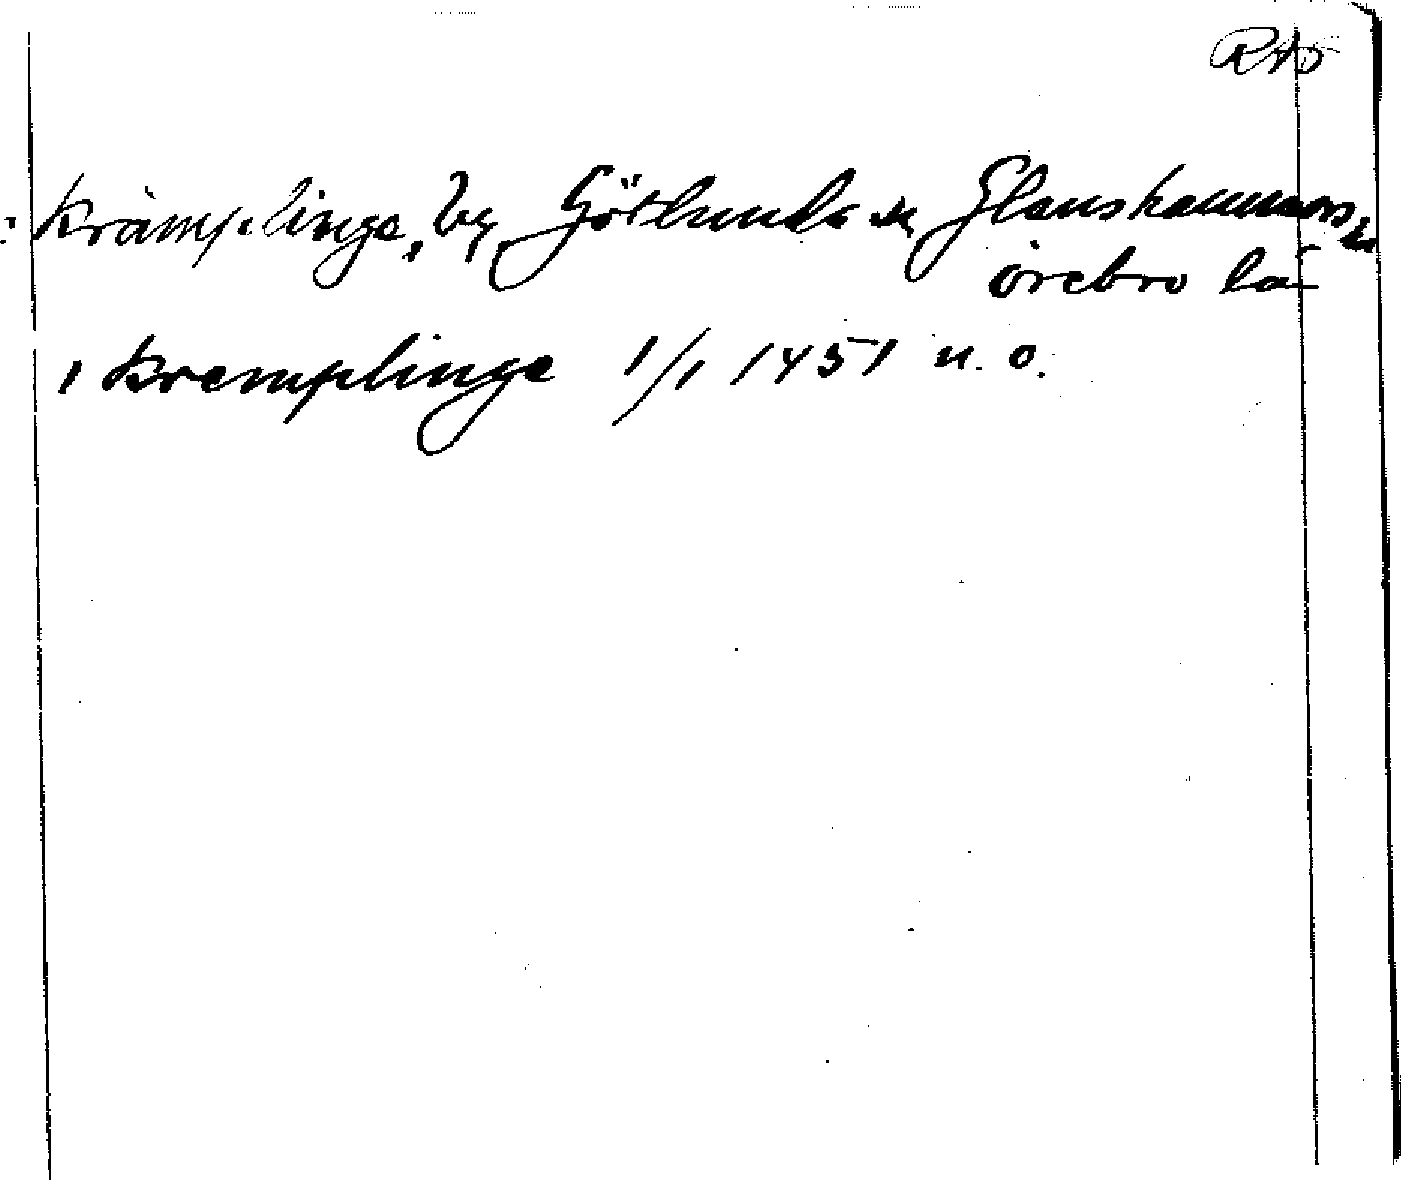 RAÖ
Krämplinge, by, Götlunda sn, Glanshammars hd
örebro lä
i Kremplinge 1/1 1451 u. o.